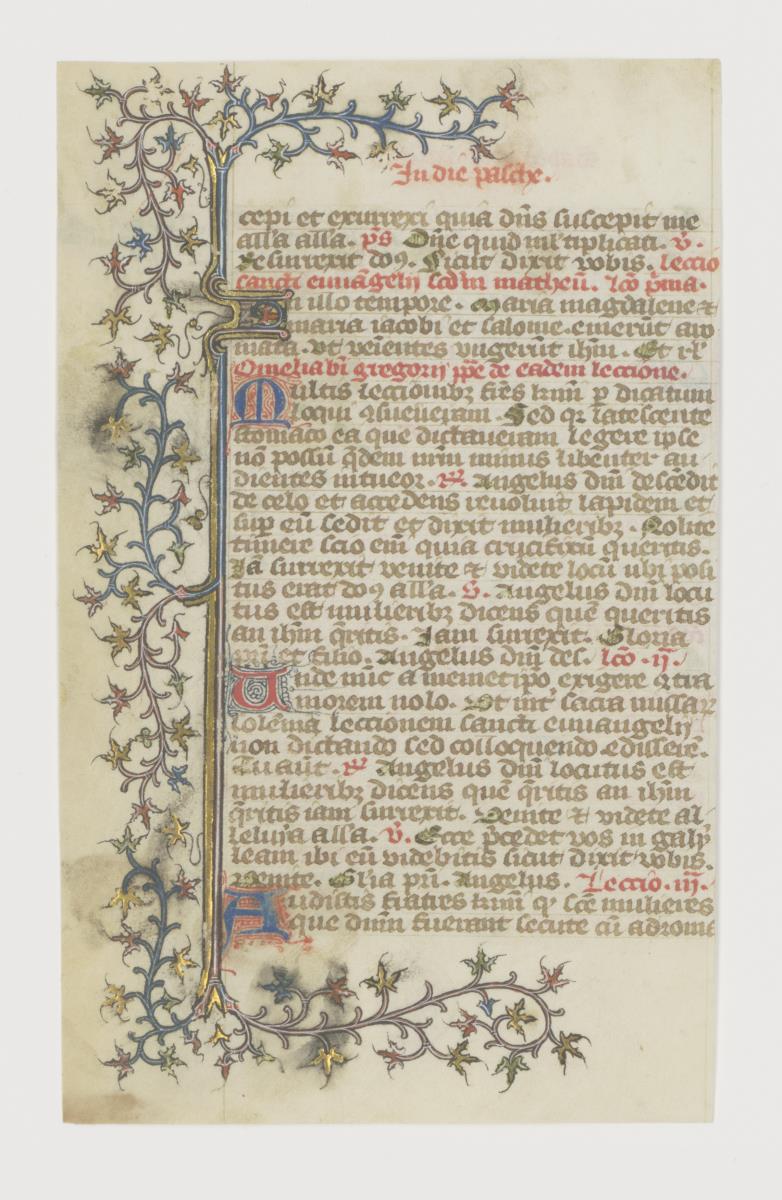 In die pasche.
cepi et exurrexi quia dns suscepit me
alla alla. ps Dne quid multiplicati. v.
Resurrexit do9. Sicut dixit vobis. lectio
sancti euuangelij scdm matheu. lco pma.
In illo tempore. Maria magdalene et
maria iacobi et salome. emerut aro
mata. vt veientes vngerut ihm. Et rl
Omelia bi gregorij ppe de eadem leccione.
Multis leccionibz fres krmi p dicatum
loqui 9sueueram. Sed qr latescente
stomaco ea que dictaueram legere ipse
no possu qdem nrm minus libenter au
dientes intueor. R Angelus dni descedit
de celo et accedens reuoluit lapidem et
sup eu sedit et dixit mulieribz. Nolite
timere scio em quia crucifixu queritis.
Ia surrexit venite et videte locu ubi posi
tus erat do9 alla. v. Angelus dni locu
tus est mulieribz dicens que queritis
an ihm qritis. Iam surrexit. Gloria
pri et filio. Angelus dni des. lco .ij.
Unde hinc a memetipo exigere 9tra
morem volo. Vt int sacra missar
solemia leccionem sancti euuangelij
non dictando sed colloquendo edissere.
Tu aut. R Angelus dni locutus est
mulieribz dicens que qritis an ihm
qritis iam surrexit. Venite et videte al
leluya alla. v. Ecce pcedet vos in galy
leam ibi eu videbitis sicut dixit vobis.
Venite. Glia pri. Angelus. Leccio .iij.
Audistis fratres krmi q sce mulieres
que dnm fuerant secute cu adroma